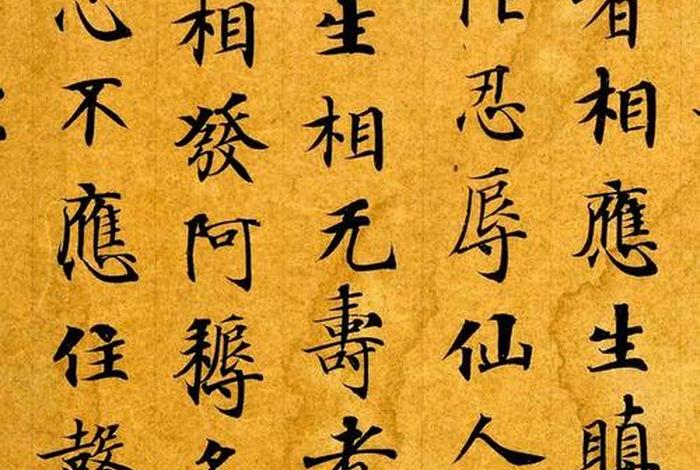 者相應生瞋
作忍辱仙人
生相无壽者
相發阿耨多
心不應住聲